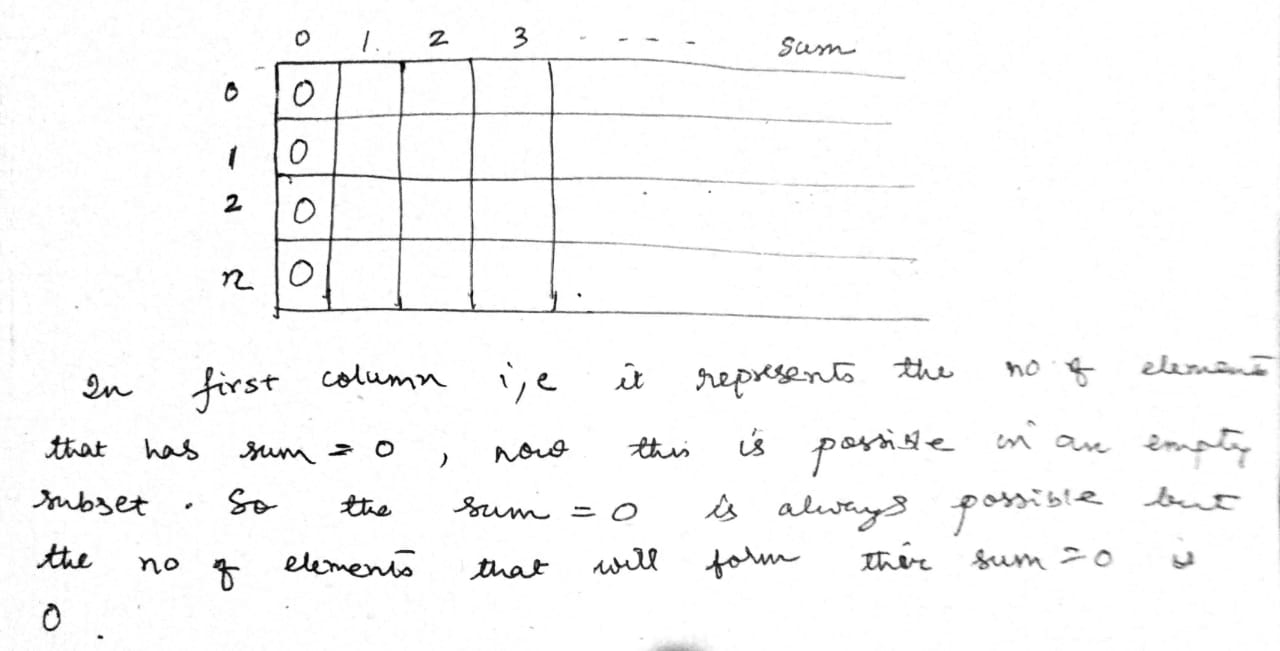 0 1 2 3 - - - - sum
0 0
1 0
2 0
n 0
In first column i,e it represents the no of elements
that has sum = 0 , now this is possible in an empty
subset . So the sum = 0 is always possible but
the no of elements that will form their sum = 0 is
0 .